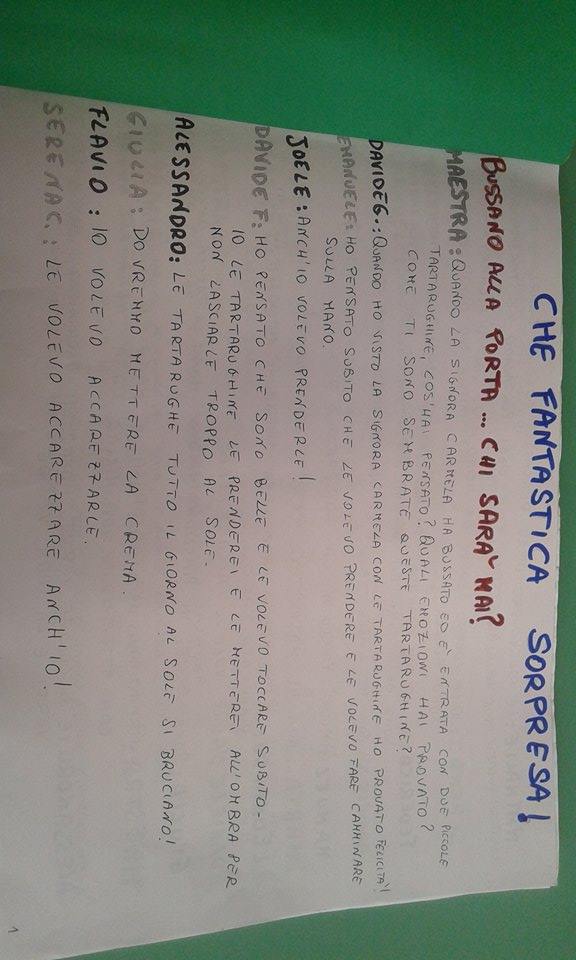 CHE FANTASTICA SORPRESA!
BUSSANO ALLA PORTA... CHI SARA' MAI?
MAESTRA: QUANDO LA SIGNORA CARMELA HA BUSSATO ED E' ENTRATA CON DUE PICCOLE
TARTARUGHINE, COS'HAI PENSATO? QUALI EMOZIONI HAI PROVATO?
COME TI SONO SEMBRATE QUESTE TARTARUGHINE?
DAVIDE G.: QUANDO HO VISTO LA SIGNORA CARMELA CON LE TARTARUGHINE HO PROVATO FELICITA'!
EMANUELE: HO PENSATO SUBITO CHE LE VOLEVO PRENDERE E LE VOLEVO FARE CAMMINARE
SULLA MANO.
JOELE: ANCH'IO VOLEVO PRENDERLE!
DAVIDE F: HO PENSATO CHE SONO BELLE E LE VOLEVO TOCCARE SUBITO-
IO LE TARTARUGHINE LE PRENDEREI E LE METTEREI ALL'OMBRA PER
NON LASCIARLE TROPPO AL SOLE.
ALESSANDRO: LE TARTARUGHE TUTTO IL GIORNO AL SOLE SI BRUCIANO!
GIULIA: DOVREMMO METTERE LA CREMA.
FLAVIO: IO VOLEVO ACCAREZZARLE.
SERENA C.: LE VOLEVO ACCAREZZARE ANCH'IO!
1